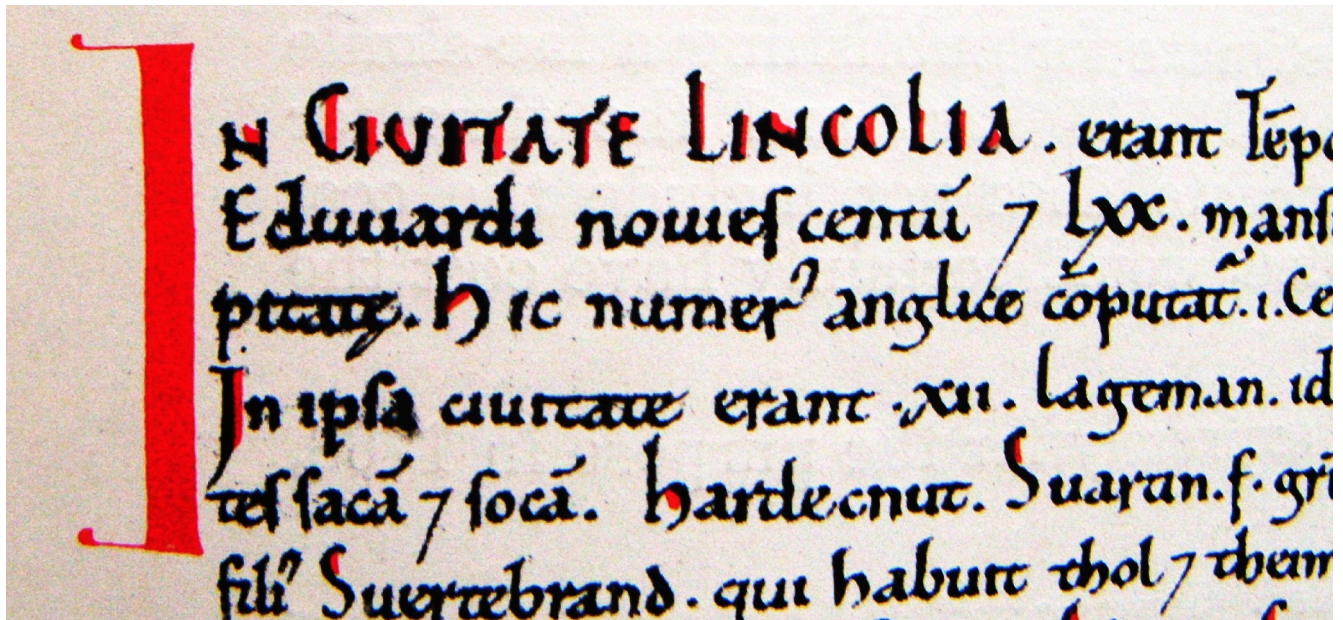 IN CIUITATE LINCOLIA. erant Tēpo
Eduuardi nouies centū ⁊ lxx. mans
pitate. Hic numer⁹ anglice cōputat̄. i. Ce
In ipsa ciuitate erant .xii. lageman. id
tes sacā ⁊ socā. Hardecnut. Suartin. f. gri
fili⁹ Suertebrand. qui habuit thol ⁊ theim